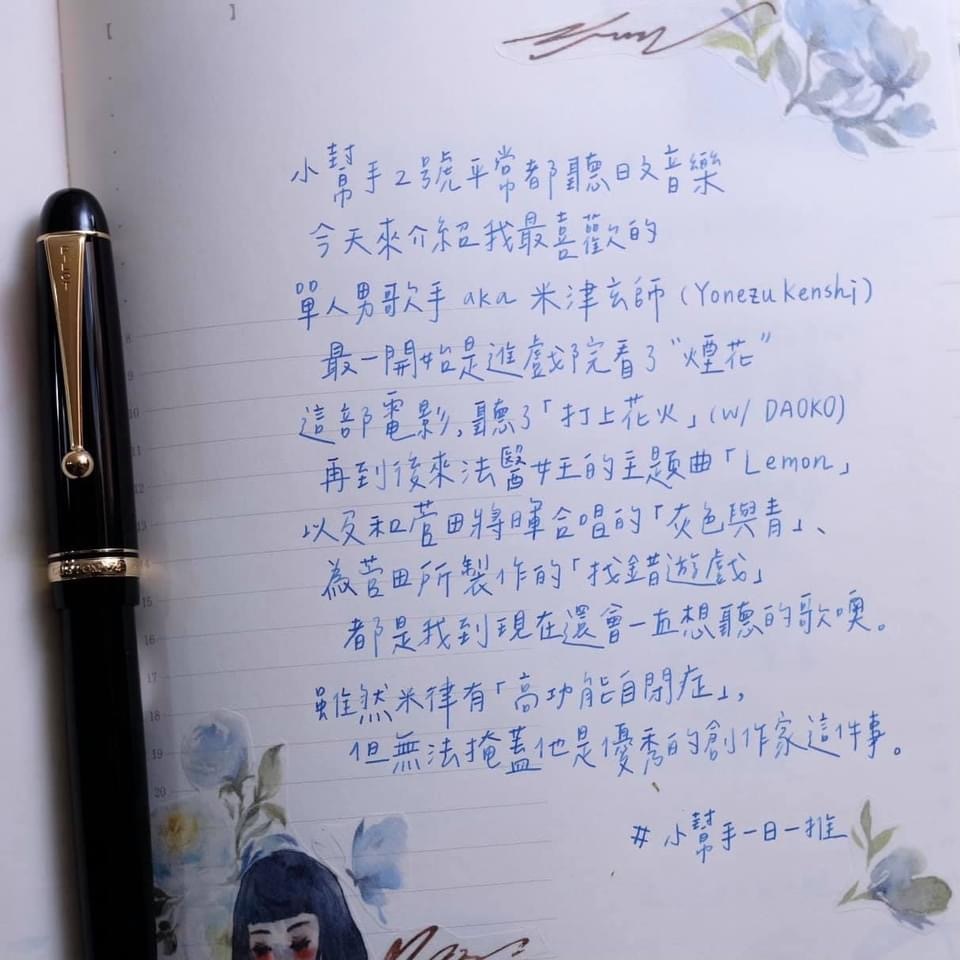 小幫手2號平常都聽日文音樂
今天來介紹我最喜歡的
單人男歌手 aka 米津玄師 (Yonezu Kenshi)
最一開始是進戲院看了"煙花"
這部電影,聽了「打上花火」(w/ DAOKO)
再到後來法醫女王的主題曲「Lemon」
以及和菅田將暉合唱的「灰色與青」、
為菅田所製作的「找錯遊戲」
都是我到現在還會一直想聽的歌噢。
雖然米律有「高功能自閉症」,
但無法掩蓋他是優秀的創作家這件事。
#小幫手一日一推
PILOT
8
9
10
11
12
13
14
15
16
17
18
19
20